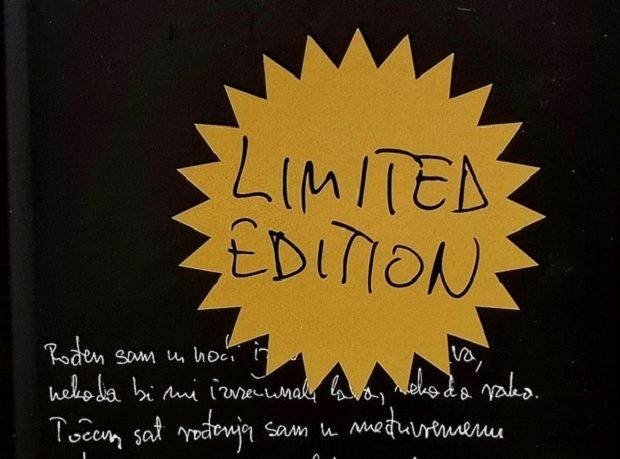 LIMITED
EDITION
Rođen sam u noći
nekada bi mi izračunali nekada vako.
Točan sat rođenja sam u međuvremenu